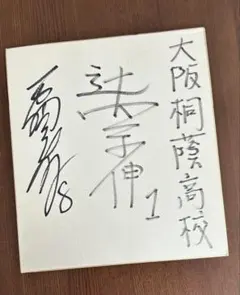 大阪桐蔭高校
辻内崇伸 1
8